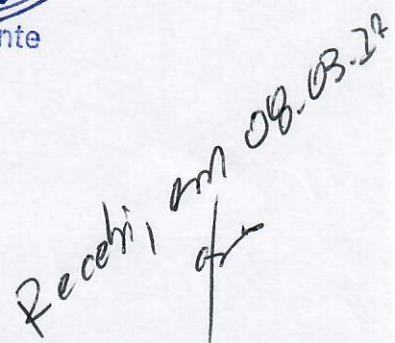 nte
Recebi, em 08.03.17